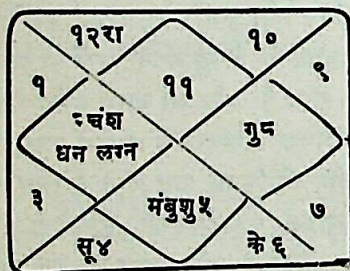 १२रा १०
१ ११ ९
२चंश गु८
धन लग्न
३ मंबुशु५ ७
सू४ के६